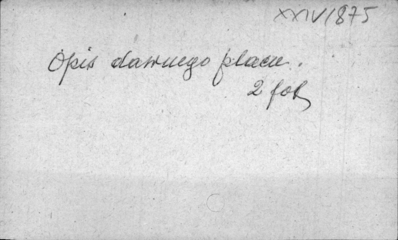 XXIV/875
Opis dawnego placu.
2 fot